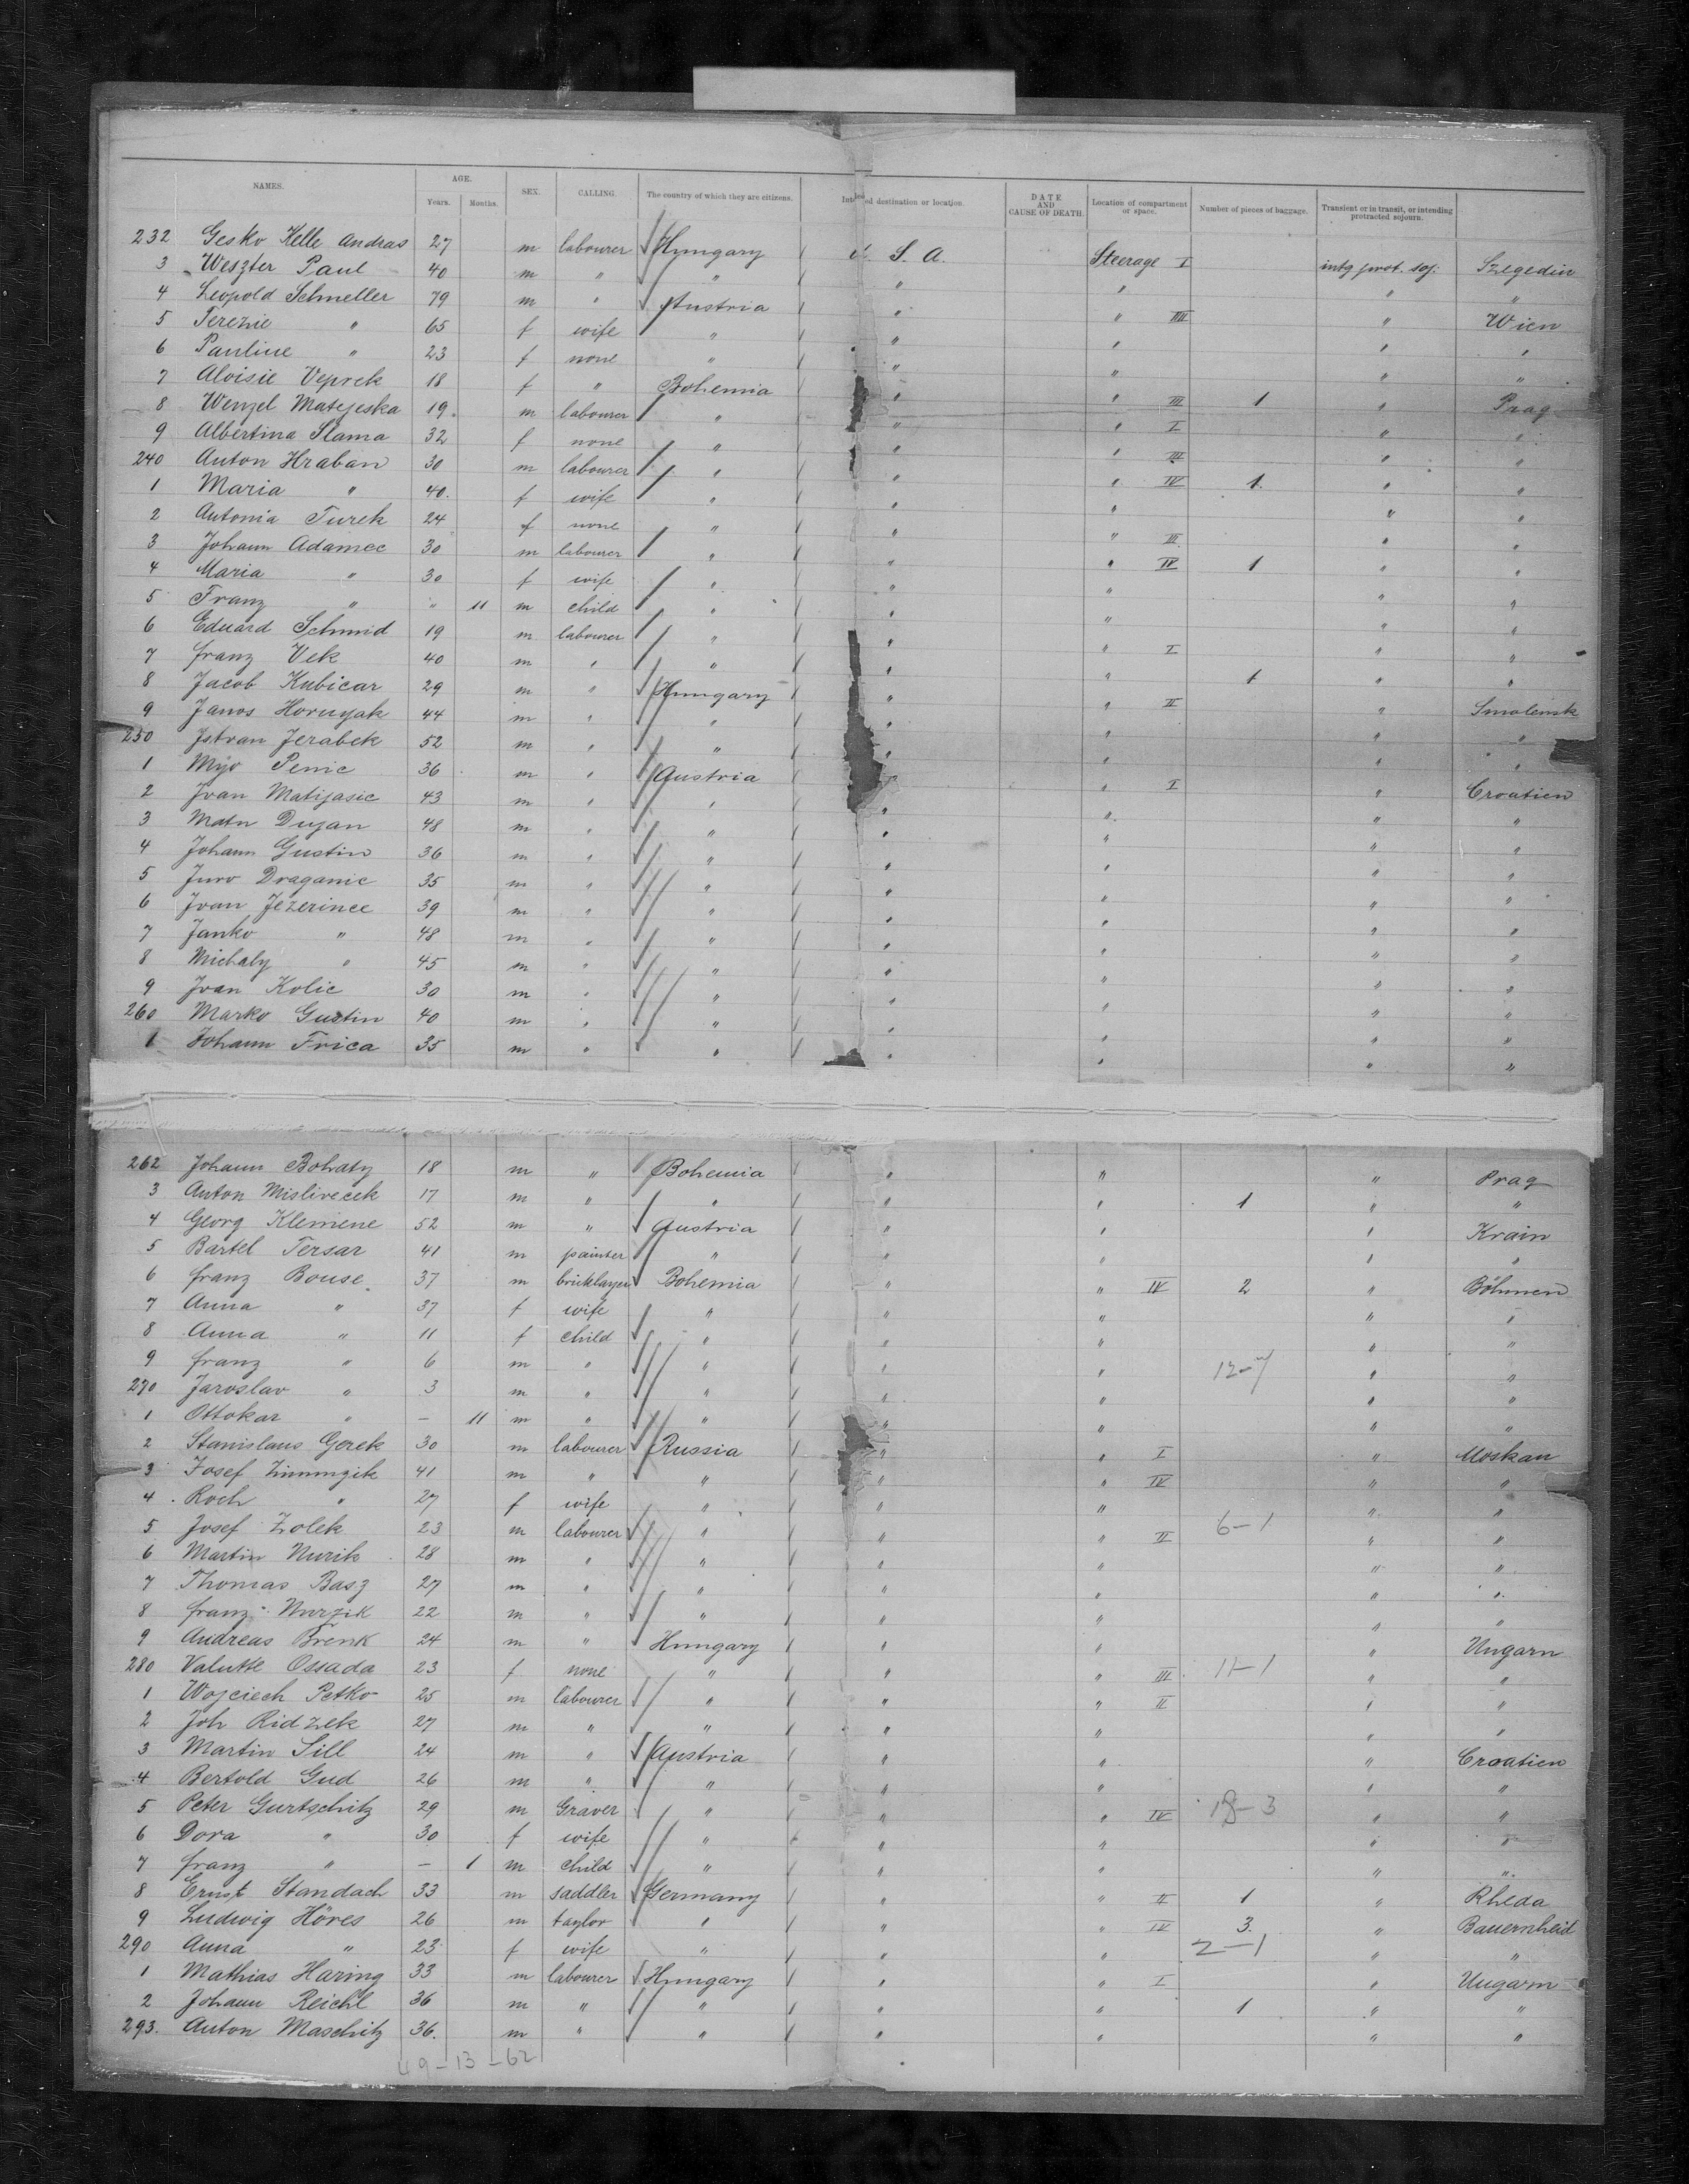 NAMES. AGE. Years. Months. SEX. CALLING. The country of which they are citizens. Intended destination or location. DATE AND CAUSE OF DEATH. Location of compartment or space. Number of pieces of baggage. Transient or in transit, or intending protracted sojourn.
232 Gesko Kelle Andras 27 m labourer Hungary U. S. A. Steerage I intg prot. soj. Szegedin
3 Weszter Paul 40 m " " " " " "
4 Leopold Schmeller 79 m " Austria " " III " Wien
5 Terezie " 65 f wife " " " " "
6 Pauline " 23 f none " " " " "
7 Aloisie Veprek 18 f " Bohemia " " III 1 " Prag
8 Wenzel Matejeska 19 m labourer " " " I " "
9 Albertina Slama 32 f none " " " III " "
240 Anton Hraban 30 m labourer " " " IV 1 " "
1 Maria " 40 f wife " " " " "
2 Antonia Turek 24 f none " " " III " "
3 Johann Adamec 30 m labourer " " " IV 1 " "
4 Maria " 30 f wife " " " " "
5 Franz " " 11 m child " " " " "
6 Eduard Schmid 19 m labourer " " " I " "
7 Franz Vek 40 m " " " " 1 " "
8 Jacob Kubicar 29 m " Hungary " " II " Smolensk
9 Janos Hornyak 44 m " " " " " "
250 Istvan Jerabek 52 m " " " " " "
1 Mijo Penic 36 m " Austria " " I " Croatien
2 Ivan Matijasic 43 m " " " " " "
3 Matn Dujan 48 m " " " " " "
4 Johann Gustin 36 m " " " " " "
5 Juro Draganic 35 m " " " " " "
6 Ivan Jezerince 39 m " " " " " "
7 Janko " 48 m " " " " " "
8 Michaly " 45 m " " " " " "
9 Ivan Kolic 30 m " " " " " "
260 Marko Gustin 40 m " " " " " "
1 Johann Frica 35 m " " " " " "
262 Johann Bohaty 18 m " Bohemia " " " Prag
3 Anton Mislivecek 17 m " " " " 1 " "
4 Georg Klemene 52 m " Austria " " " Krain
5 Bartel Tersar 41 m painter " " " " "
6 Franz Bouse 37 m bricklayer Bohemia " " IV 2 " Böhmen
7 Anna " 37 f wife " " " " "
8 Anna " 11 f child " " " " "
9 Franz " 6 m " " " " 12-7 " "
270 Jaroslav " 3 m " " " " " "
1 Ottokar " - 11 m " " " " " "
2 Stanislaus Gorek 30 m labourer Russia " " I " Moskau
3 Josef 41 m " " " " IV " "
4 Roch " 27 f wife " " " " "
5 Josef Zolek 23 m labourer " " " II 6-1 " "
6 Martin Nurik 28 m " " " " " "
7 Thomas Basz 27 m " " " " " "
8 Franz Nurzik 22 m " " " " " "
9 Andreas Brenk 24 m " Hungary " " " Ungarn
280 Valutte Ossada 23 f none " " " III 11-1 " "
1 Wojciech Petko 25 m labourer " " " II " "
2 Joh Ridzek 27 m " " " " " "
3 Martin Sill 24 m " Austria " " " Croatien
4 Bertold Gud 26 m " " " " " "
5 Peter Gurtschitz 29 m Graver " " " IV 18-3 " "
6 Dora " 30 f wife " " " " "
7 Franz " - 1 m child " " " " "
8 Ernst Standach 33 m saddler Germany " " II 1 " Rheda
9 Ludwig Höres 26 m taylor " " " IV 3 " Bauernheid
290 Anna " 23 f wife " " " 2-1 " "
1 Mathias Haring 33 m labourer Hungary " " I " Ungarn
2 Johann Reichl 36 m " " " " 1 " "
293. Anton Maschitz 36. m " " " " " "
49-13-62